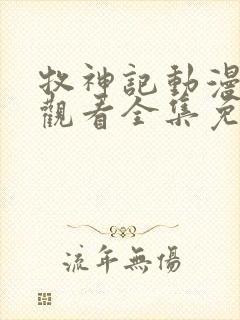 牧神記動漫
觀看全集免
流年無傷